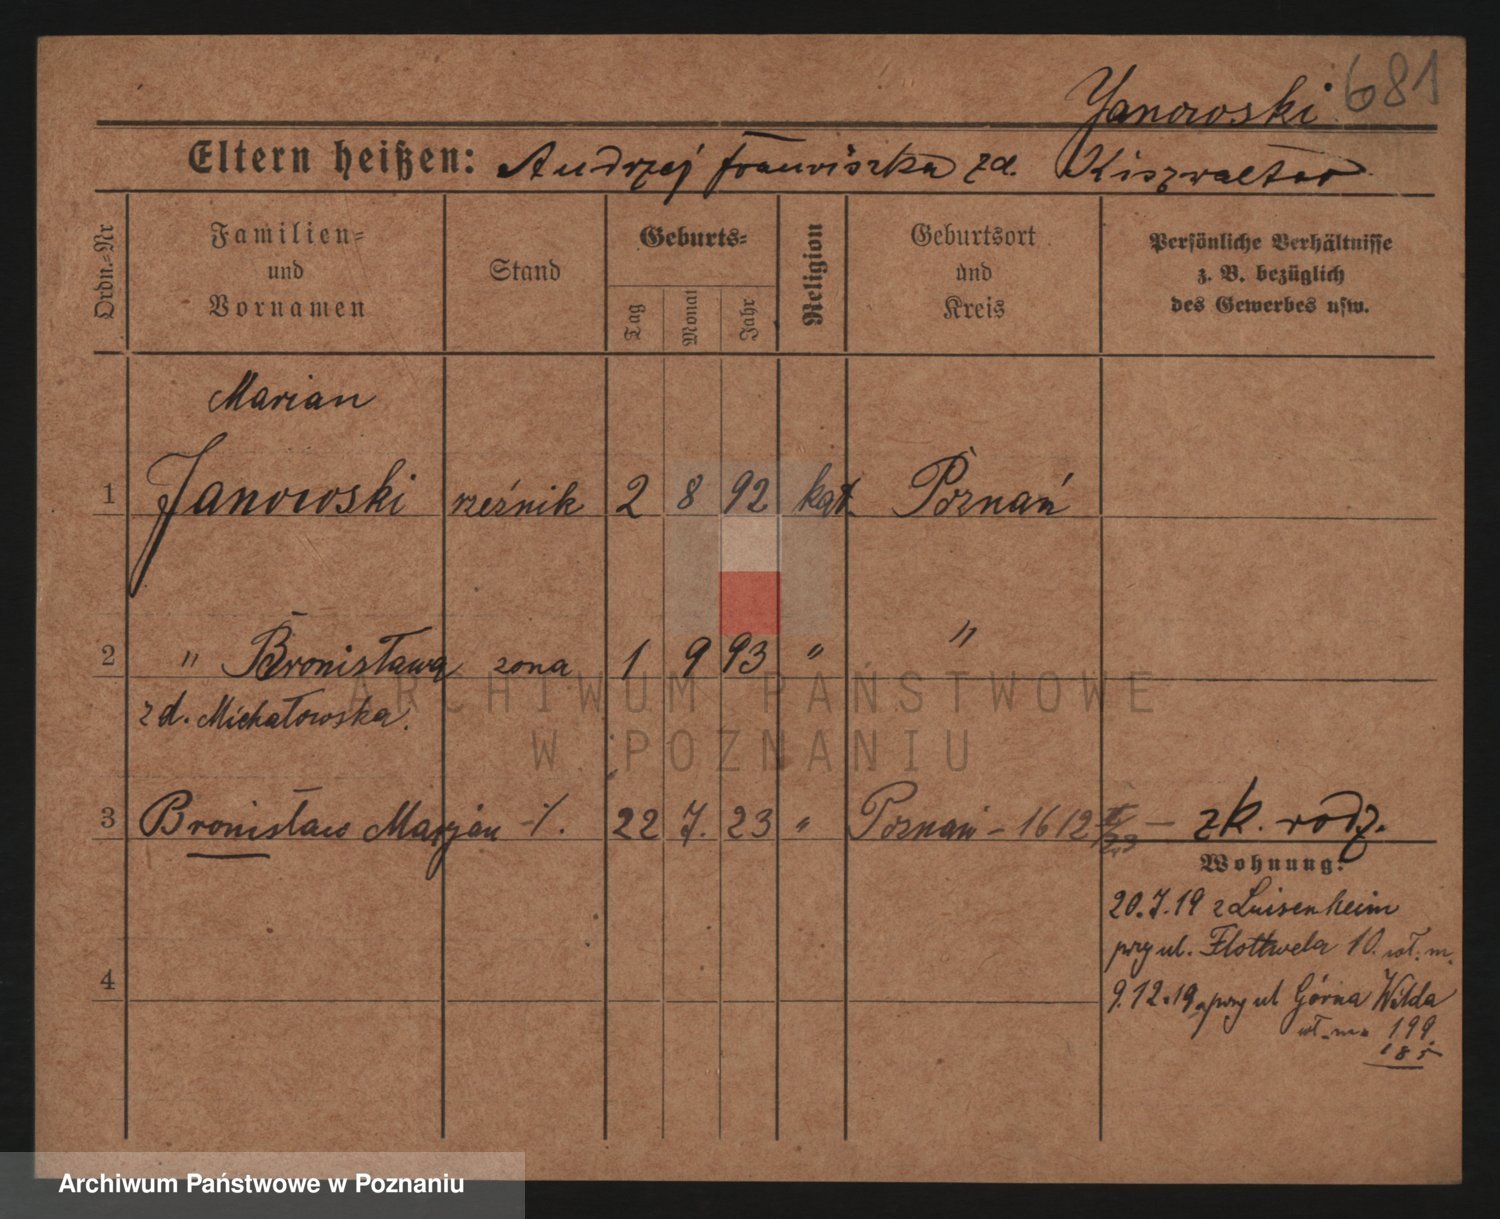 Janowski 681
Eltern heißen: Andrzej Franciszka zd. Kiszwalter
Ordn.-Nr
Familien-
und
Vornamen
Stand
Geburts-
Tag
Monat
Jahr
Religion
Geburtsort
und
Kreis
Persönliche Verhältnisse
z. B. bezüglich
des Gewerbes usw.
Marian
1 Janowski rzeźnik 2 8 92 kat. Poznań
2 " Bronisława zona 1 9 93 " "
z d. Michałowska.
3 Bronisław Marjan -/. 22 7. 23 " Poznań - 1612 — zk. rodz.
Wohnung:
20.7.19 z Luisenheim
przy ul. Flottwela 10. wł. m.
9.12.19 przy ul Górna Wilda
wł. m. 199
185
4
ARCHIWUM PAŃSTWOWE
W POZNANIU
Archiwum Państwowe w Poznaniu